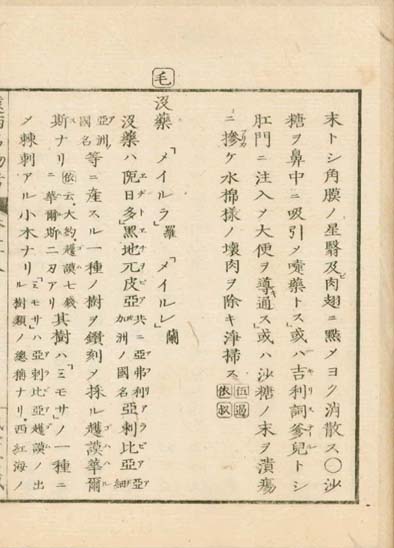 末トシ角膜ノ星翳及ビ肉翅ニ點メヨク消散ス〇沙
糖ヲ鼻中ニ吸引メ嚏藥トス」或ハ吉利詞爹兒トシ
肛門ニ注入メ大便ヲ導通ス」或ハ沙糖ノ末ヲ潰瘍
ニ摻ケ水棉様ノ壊肉ヲ除キ淨掃ス
毛
没藥「メイルラ」羅「メイルレ」蘭
没藥ハ阨日多」黑地元皮亞共ニ亞弗利加洲ノ國名亞剌比亞亞細亞洲ノ國名等ニ產スル一種ノ樹ヲ鑽刻メ採ル護謨華爾
斯ナリ依云、大約護謨七錢ニ華爾斯二刄アリ其樹ハ「ミモサ」ノ一種ニ
メ棘刺アル小木ナリ「ミモサ」ハ亞剌比亞護謨ノ出ル樹類ノ總稱ナリ西紅海ノ